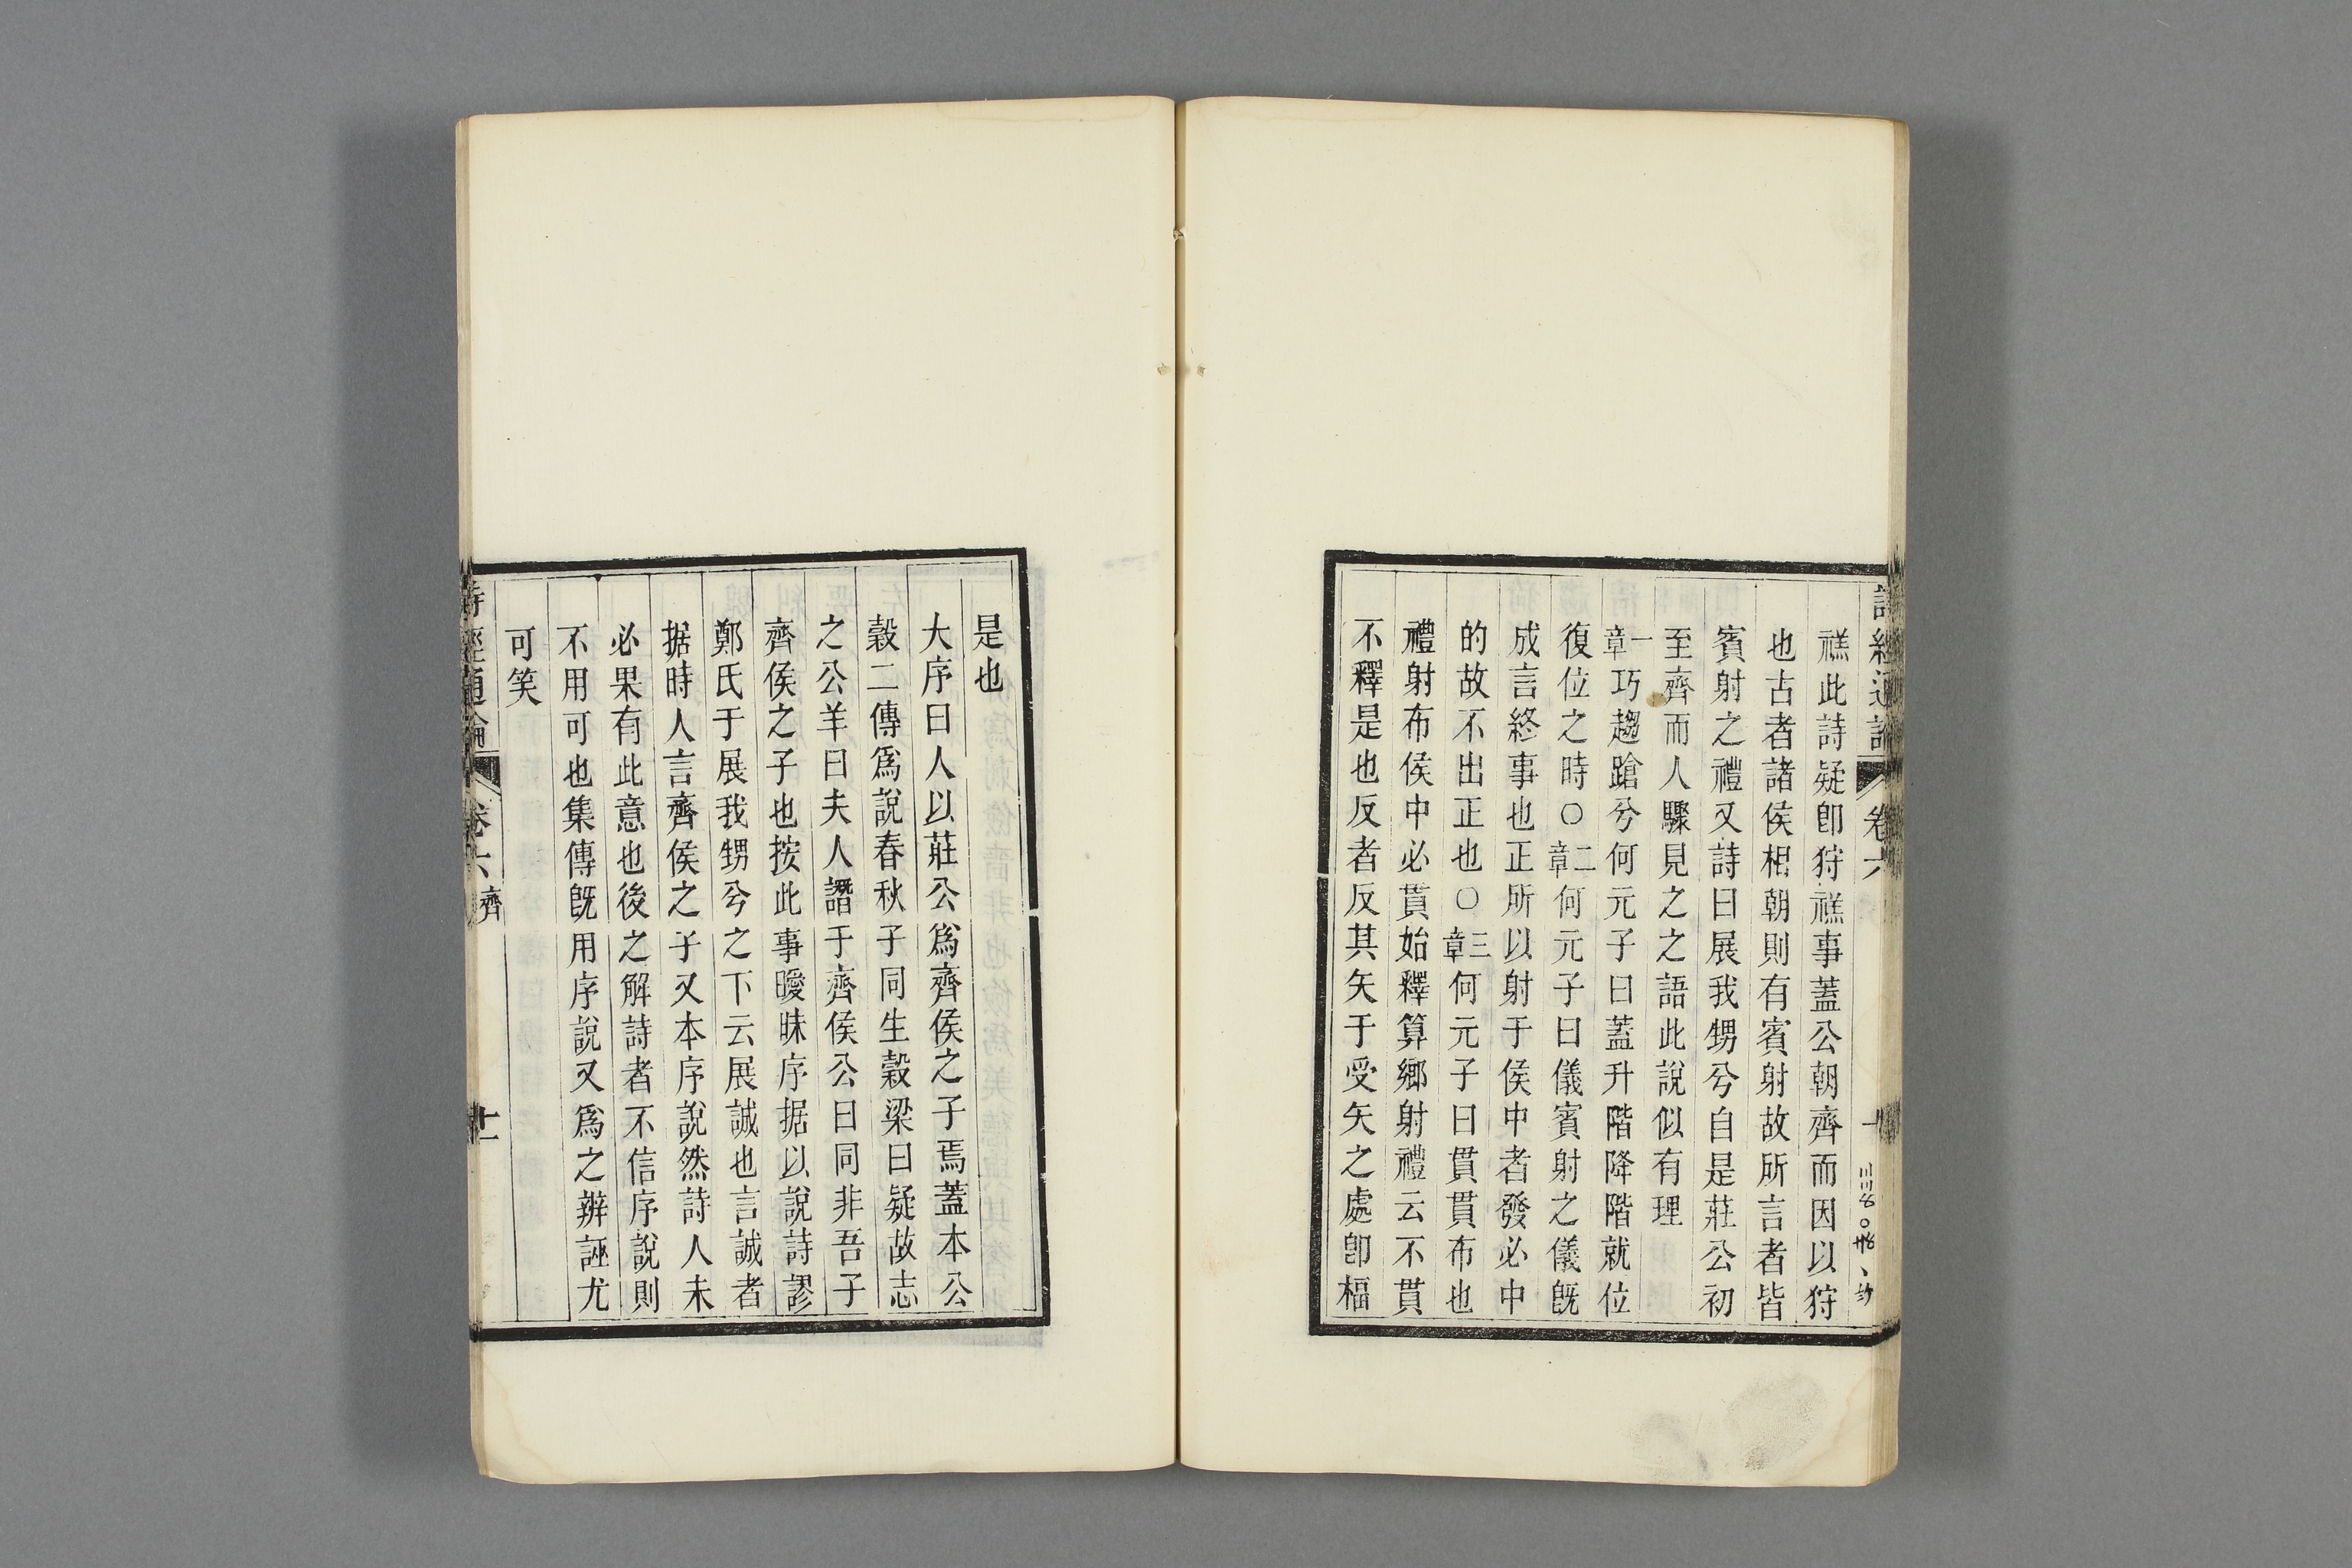 詩經通論
卷六
禚此詩疑卽狩禚事蓋公朝齊而因以狩
也古者諸侯相朝則有賓射故所言者皆
賓射之禮又詩曰展我甥兮自是莊公初
至齊而人驟見之之語此說似有理
一章巧趨蹌兮何元子曰蓋升階降階就位
復位之時〇二章何元子曰儀賓射之儀旣
成言終事也正所以射于侯中者發必中
的故不出正也〇三章何元子曰貫貫布也
禮射布侯中必貫始釋算鄉射禮云不貫
不釋是也反者反其矢于受矢之處卽楅
是也
大序曰人以莊公爲齊侯之子焉蓋本公
穀二傳爲說春秋子同生穀梁曰疑故志
之公羊曰夫人譖于齊侯公曰同非吾子
齊侯之子也按此事曖昧序据以說詩謬
鄭氏于展我甥兮之下云展誠也言誠者
据時人言齊侯之子又本序說然詩人未
必果有此意也後之解詩者不信序說則
不用可也集傳旣用序說又爲之辨誣尤
可笑
詩經通論
卷六
齊
十一